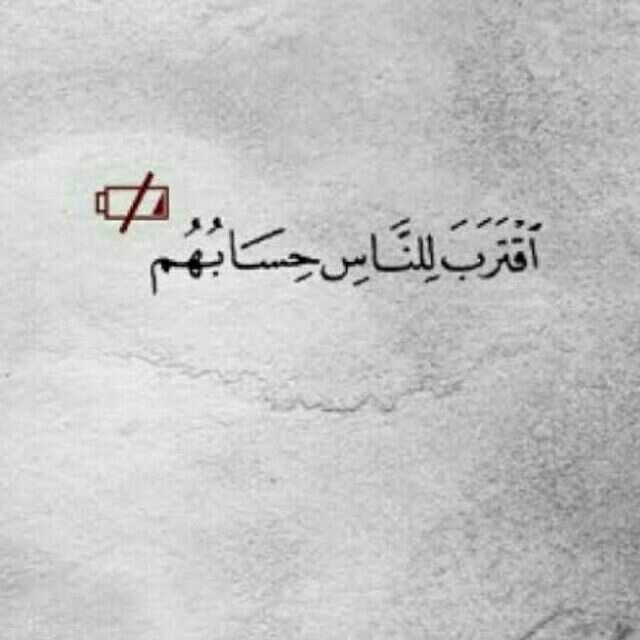 اَقْتَرَبَ لِلنَّاسِ حِسَابُهُم